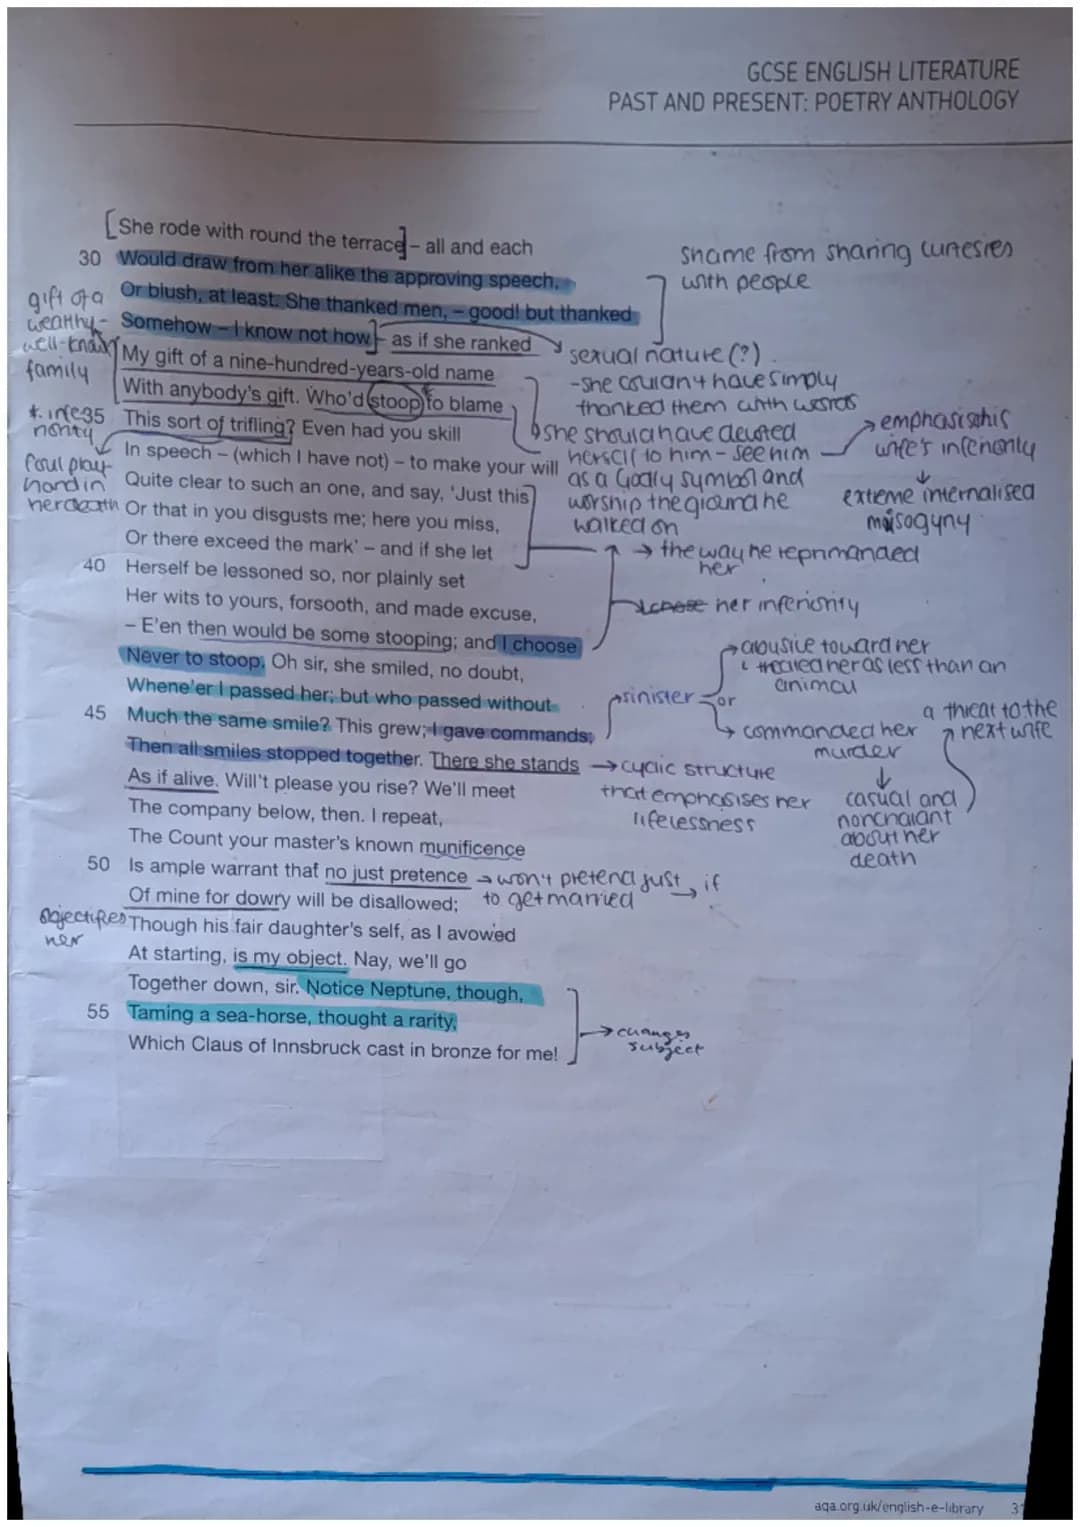 GCSE ENGLISH LITERATURE
PAST AND PRESENT: POETRY ANTHOLOGY
[She rode with round the terrace] – all and each
30 Would draw from her alike the approving speech,
Or blush, at least. She thanked men, – good! but thanked
Somehow – I know not how] – as if she ranked
My gift of a nine-hundred-years-old name
With anybody's gift. Who'd stoop to blame
35 This sort of trifling? Even had you skill
In speech – (which I have not) – to make your will
Quite clear to such an one, and say, 'Just this
Or that in you disgusts me; here you miss,
Or there exceed the mark' – and if she let
40 Herself be lessoned so, nor plainly set
Her wits to yours, forsooth, and made excuse,
– E'en then would be some stooping; and I choose
Never to stoop. Oh sir, she smiled, no doubt,
Whene'er I passed her; but who passed without
45 Much the same smile? This grew; I gave commands;
Then all smiles stopped together. There she stands
As if alive. Will't please you rise? We'll meet
The company below, then. I repeat,
The Count your master's known munificence
50 Is ample warrant that no just pretence
Of mine for dowry will be disallowed;
Though his fair daughter's self, as I avowed
At starting, is my object. Nay, we'll go
Together down, sir. Notice Neptune, though,
55 Taming a sea-horse, thought a rarity,
Which Claus of Innsbruck cast in bronze for me!
gift of a
wealthy-
well-known
family
foul play
hand in
her death
objectifies
her
shame from sharing curtesies
with people
sexual nature (?)
- she couldn't have simply
thanked them with words
she should have devoted
herself to him - see him
as a Godly symbol and
worship the ground he
walked on
emphasis his
wife's inferiority
↓
extreme internalised
misogyny
→ the way he reprimanded
her
her inferiority
sinister
→ abusive toward her
treated her as less than an
animal
or
→ commanded her
murder
↓
casual and
nonchalant
about her
death
a threat to the
next wife
→ cyclic structure
that emphasises her
lifelessness
→ won't pretend just
to get married
→ if
→ changes
subject
aqa.org.uk/english-e-library